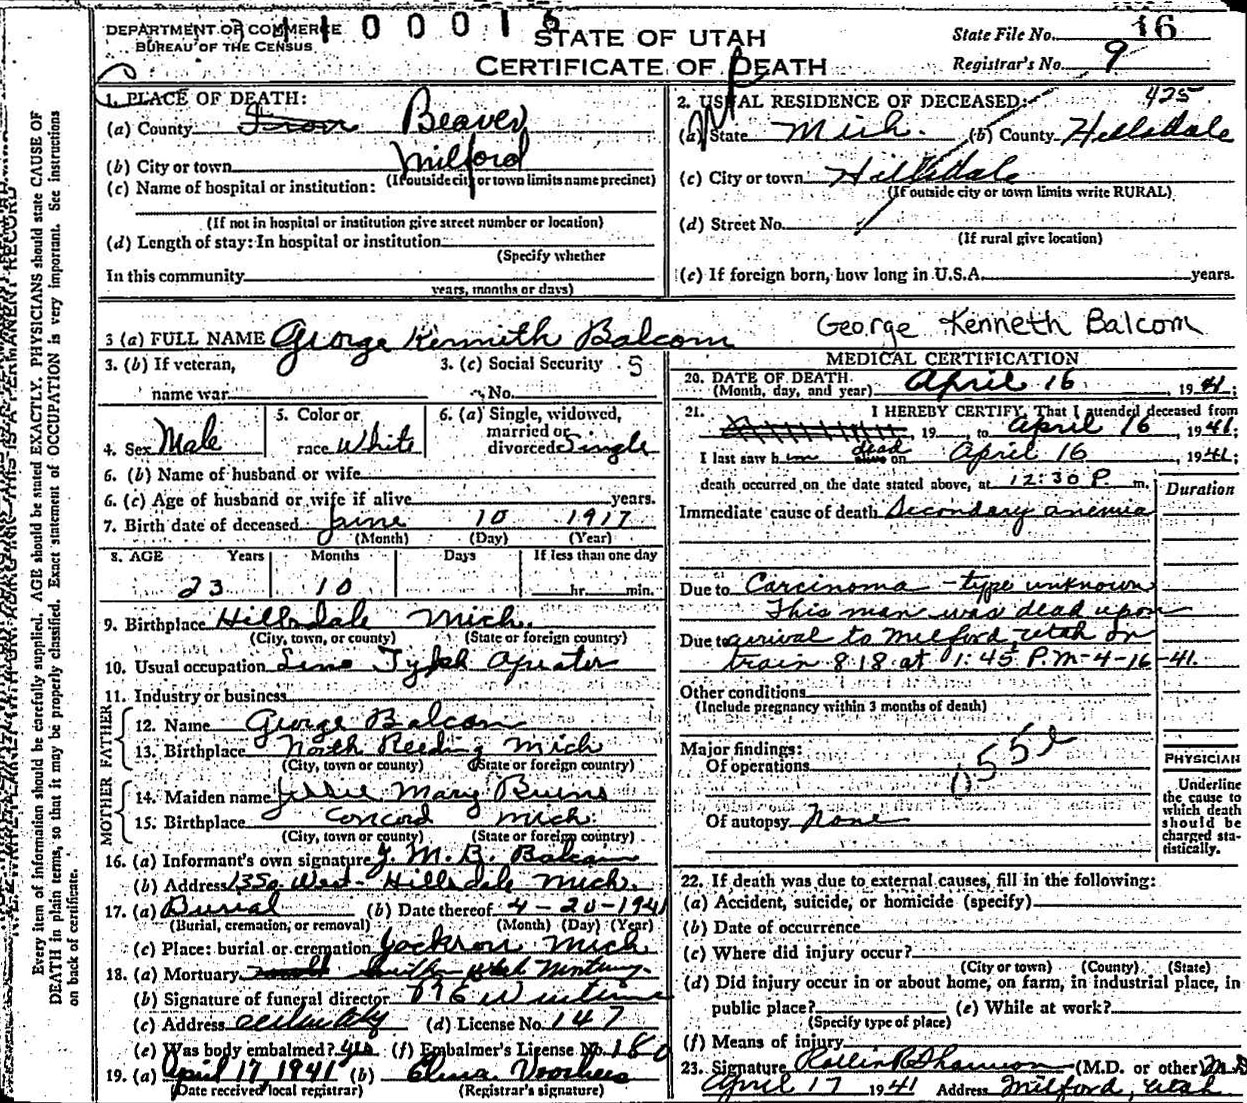 DEPARTMENT OF COMMERCE
BUREAU OF THE CENSUS
110001
STATE OF UTAH
CERTIFICATE OF DEATH
State File No. 16
Registrar's No. 9
Every item of information should be carefully supplied. AGE should be stated EXACTLY. PHYSICIANS should state CAUSE OF
DEATH in plain terms, so that it may be properly classified. Exact statement of OCCUPATION is very important. See instructions
on back of certificate.
1. PLACE OF DEATH:
(a) County Iron Beaver
(b) City or town Milford
(If outside city or town limits name precinct)
(c) Name of hospital or institution:
(If not in hospital or institution give street number or location)
(d) Length of stay: In hospital or institution
(Specify whether
In this community
years, months or days)
2. USUAL RESIDENCE OF DECEASED: 425
(a) State Mich. (b) County Hillsdale
(c) City or town Hillsdale
(If outside city or town limits write RURAL)
(d) Street No.
(If rural give location)
(e) If foreign born, how long in U.S.A. years.
3 (a) FULL NAME George Kenneth Balcom George Kenneth Balcom
3. (b) If veteran, 3. (c) Social Security S
name war No.
4. Sex Male
5. Color or
race White
6. (a) Single, widowed,
married or
divorced Single
6. (b) Name of husband or wife
6. (c) Age of husband or wife if alive years.
7. Birth date of deceased June 10 1917
(Month) (Day) (Year)
8. AGE Years Months Days If less than one day
23 10 hr. min.
9. Birthplace Hillsdale Mich.
(City, town, or county) (State or foreign country)
10. Usual occupation Lino Type Operator
11. Industry or business
FATHER
12. Name George Balcom
13. Birthplace North Reeding Mich
(City, town or county) (State or foreign country)
MOTHER
14. Maiden name Jessie Mary Burns
15. Birthplace Concord Mich.
(City, town or county) (State or foreign country)
16. (a) Informant's own signature J. M. B. Balcom
(b) Address West Hillsdale Mich.
17. (a) Burial (b) Date thereof 4-20-1941
(Burial, cremation, or removal) (Month) (Day) (Year)
(c) Place: burial or cremation Jackson Mich
18. (a) Mortuary Southern Utah Mortuary
(b) Signature of funeral director
(c) Address Cedar City (d) License No. 147
(e) Was body embalmed? yes (f) Embalmer's License No. 180
19. (a) April 17, 1941 (b) Elma Voorhees
(Date received local registrar) (Registrar's signature)
MEDICAL CERTIFICATION
20. DATE OF DEATH
(Month, day, and year) April 16, 1941;
21. I HEREBY CERTIFY, That I attended deceased from
, 19 to April 16, 1941;
I last saw him alive dead on April 16, 1941;
death occurred on the date stated above, at 12:30 P. m.
Duration
Immediate cause of death Secondary anemia
Due to Carcinoma - type unknown
This man was dead upon
Due to arrival to Milford, Utah on
train 818 at 1:45 P.M-4-16-41.
Other conditions
(Include pregnancy within 3 months of death)
Major findings:
Of operations
055e
Of autopsy None
PHYSICIAN
Underline
the cause to
which death
should be
charged sta-
tistically.
22. If death was due to external causes, fill in the following:
(a) Accident, suicide, or homicide (specify)
(b) Date of occurrence
(c) Where did injury occur?
(City or town) (County) (State)
(d) Did injury occur in or about home, on farm, in industrial place, in
public place? (e) While at work?
(Specify type of place)
(f) Means of injury
23. Signature Rollin R Shannon (M.D. or other) M.D.
April 17 1941 Address Milford, Utah